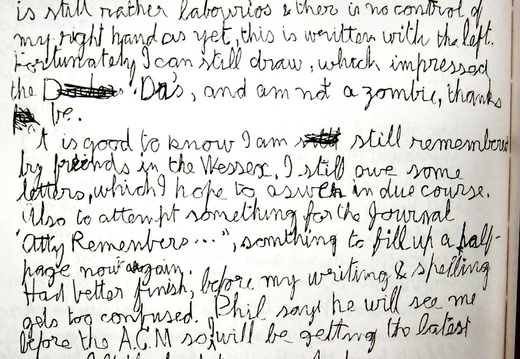 is still rather labourios & ther is no control of
my right hand as yet, this is written with the left.
Fortunately I can still draw, which impressed
the Da's, and am not a zombie, thanks
be.
't is good to know I am still remembered
by friends in the Wessex, I still owe some
letters, which I hope to aswer in due course.
Also to attempt something for the Journal
"Atty Remembers ...", somthing to fill up a half-
page now & again.
Had better finish, before my writing & spelling
gets too confused. Phil says he will see me
before the AGM so, will be getting the latest